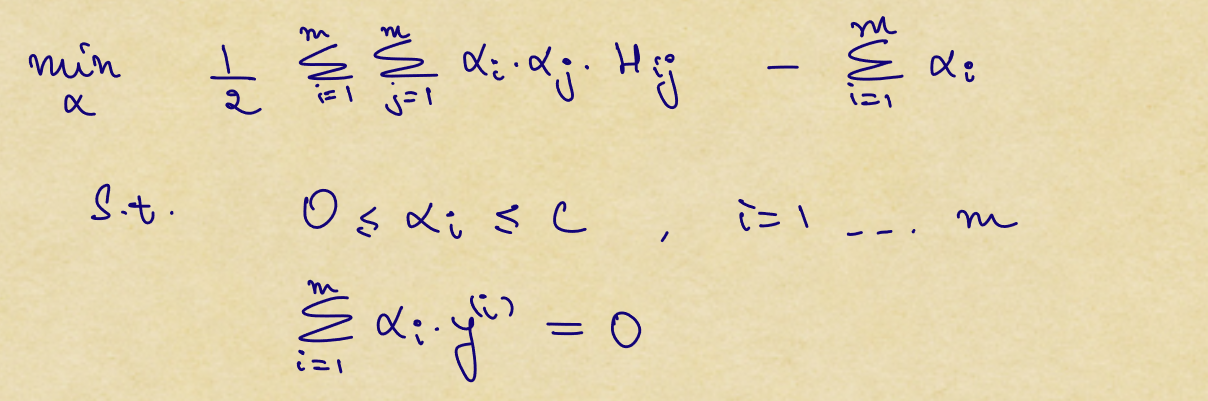 min_α 1/2 Σ_{i=1}^{m} Σ_{j=1}^{m} α_i · α_j · H_{ij} − Σ_{i=1}^{m} α_i
s.t. 0 ≤ α_i ≤ C , i=1 ---. m
Σ_{i=1}^{m} α_i · y^{(i)} = 0